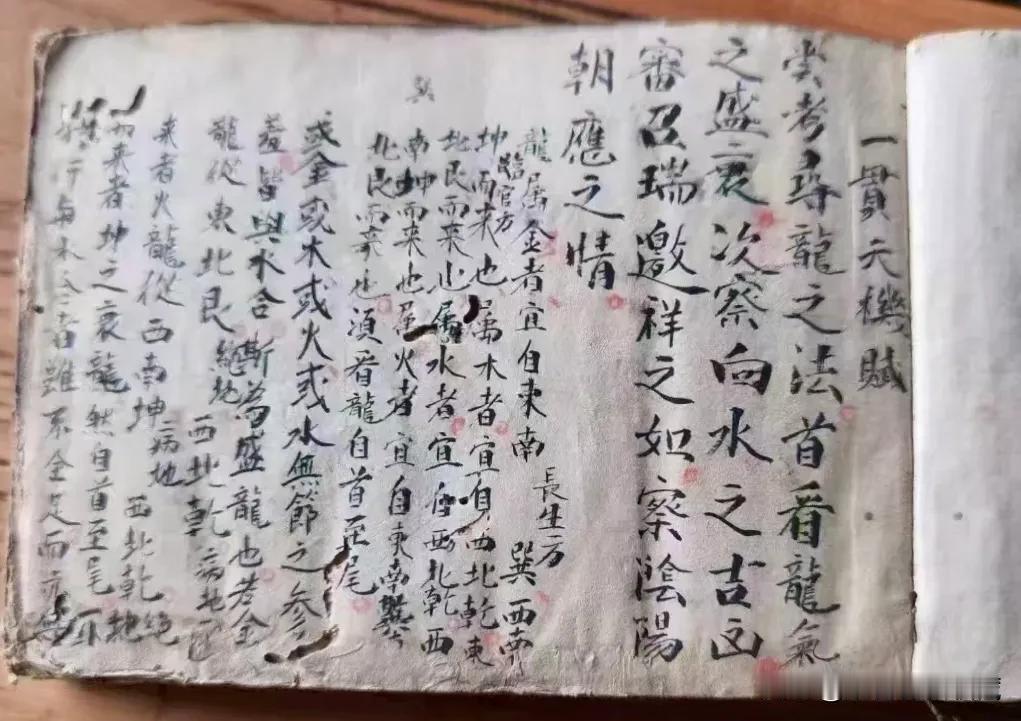 一貫天機賦
嘗考尋龍之法首看龍氣
之盛衰次察向水之吉凶
審召瑞邀祥之如察陰陽
朝應之情
巽
龍属金者宜自東南長生方巽西南
坤臨官方而来也属木者宜自西北乾東
北艮而来也属水者宜自西北乾西
南坤而来也属火者宜自東南巽
北艮而来也須看龍自首至尾
或金或木或火或水無節之参
差皆與水合斯為盛龍也若金
龍從東北艮絶地西北乾病地
来者火龍從西南坤病地西北乾絶地
而来者坤之衰龍然自首至尾
每木者雖不全足而